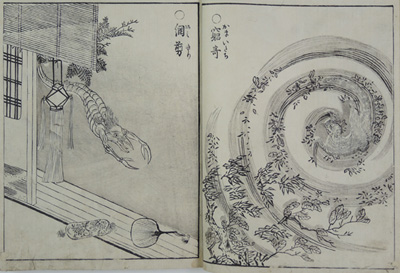 ○窮奇
かまいたち
○網剪
あみきり